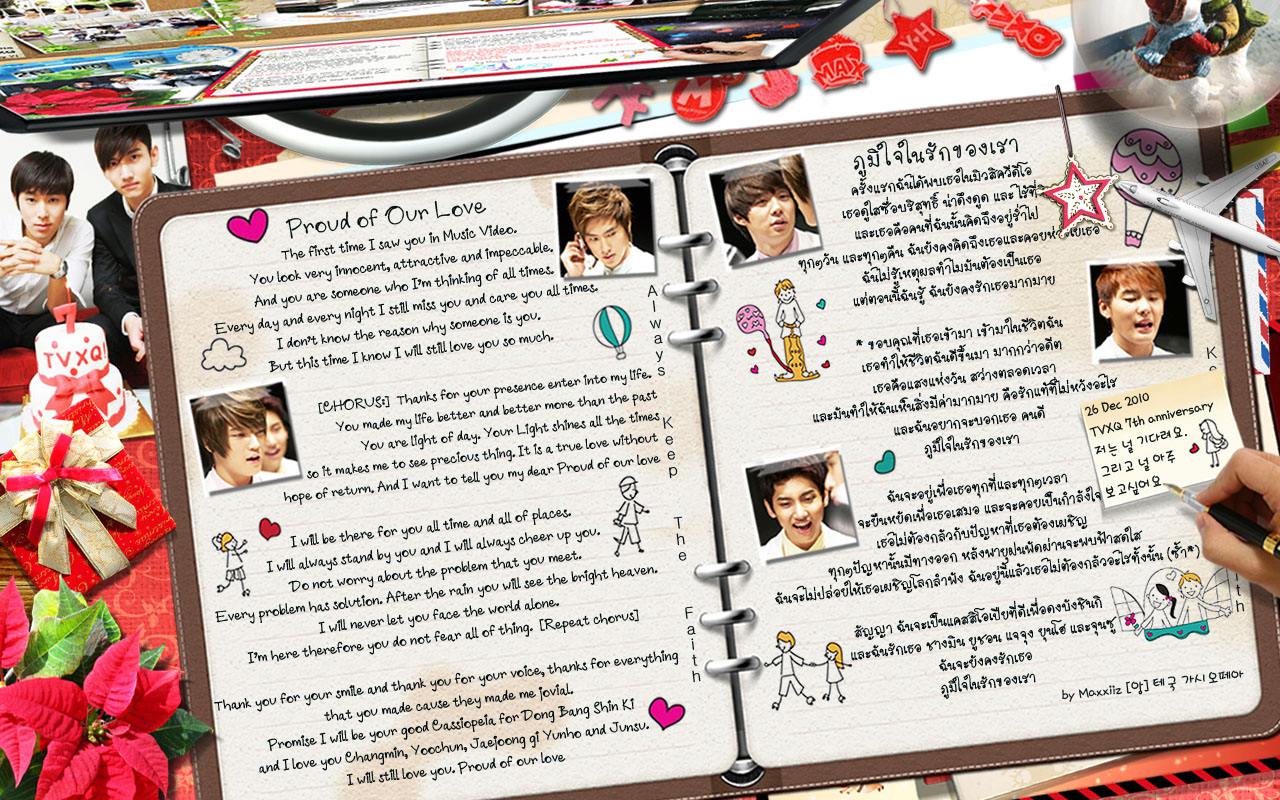 TVXQ!
Proud of Our Love
The first time I saw you in Music Video.
You look very innocent, attractive and impeccable.
And you are someone who I'm thinking of all times.
Every day and every night I still miss you and care you all times.
I don't know the reason why someone is you.
But this time I know I will still love you so much.
[CHORUS:] Thanks for your presence enter into my life.
You made my life better and better more than the past
You are light of day. Your Light shines all the times
so it makes me to see precious thing. It is a true love without
hope of return. And I want to tell you my dear Proud of our love
I will be there for you all time and all of places.
I will always stand by you and I will always cheer up you.
Do not worry about the problem that you meet.
Every problem has solution. After the rain you will see the bright heaven.
I will never let you face the world alone.
I'm here therefore you do not fear all of thing. [Repeat chorus]
Thank you for your smile and thank you for your voice, thanks for everything
that you made cause they made me jovial.
Promise I will be your good Cassiopeia for Dong Bang Shin Ki
and I love you Changmin, Yoochun, Jaejoong gi Yunho and Junsu.
I will still love you. Proud of our love
Always Keep The Faith
ภูมิใจในรักของเรา
ครั้งแรกฉันได้พบเธอในมิวสิควีดีโอ
เธอดูใสซื่อบริสุทธิ์ น่าดึงดูด และ ไร้ที่
และเธอคือคนที่ฉันนั้นคิดถึงอยู่ร่ำไป
ทุกๆวัน และทุกๆคืน ฉันยังคงคิดถึงเธอและคอย
ฉันไม่รู้เหตุผลทำไมมันต้องเป็นเธอ
แต่ตอนนี้ฉันรู้ ฉันยังคงรักเธอมากมาย
* ขอบคุณที่เธอเข้ามา เข้ามาในชีวิตฉัน
เธอทำให้ชีวิตฉันดีขึ้นมา มากกว่าอดีต
เธอคือแสงแห่งวัน สว่างตลอดเวลา
และมันทำให้ฉันเห็นสิ่งมีค่ามากมาย คือรักแท้ที่ไม่หวังอะไร
และฉันอยากจะบอกเธอ คนดี
ภูมิใจในรักของเรา
ฉันจะอยู่เพื่อเธอทุกที่และทุกๆเวลา
จะยืนหยัดเพื่อเธอเสมอ และจะคอยเป็นกำลังใจ
เธอไม่ต้องกลัวกับปัญหาที่เธอต้องเผชิญ
ทุกๆปัญหานั้นมีทางออก หลังพายุฝนพัดผ่านจะพบฟ้าสดใส
ฉันจะไม่ปล่อยให้เธอเผชิญโลกลำพัง ฉันอยู่นี่แล้วเธอไม่ต้องกลัวอะไรทั้งนั้น (ซ้ำ*)
สัญญา ฉันจะเป็นแคสสิโอเปียที่ดีเพื่อดงบังชินกิ
และฉันรักเธอ ชางมิน ยูชอน แจจุง ยุนโฮ และจุนซู
ฉันจะยังคงรักเธอ
ภูมิใจในรักของเรา
by Maxxiiz [앙] 태국 가시오페아
26 Dec 2010
TVXQ 7th anniversary
저는 널 기다려요.
그리고 널 아주
보고싶어요
Y-H
MAX
TVXQ